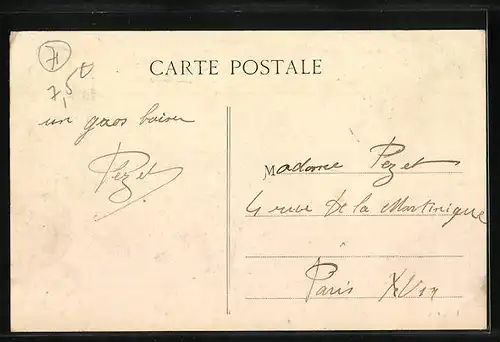 71
7,50
CARTE POSTALE
un gros baiser
Pezet
Madame Pezet
4 rue De la Martinique
Paris XVIII